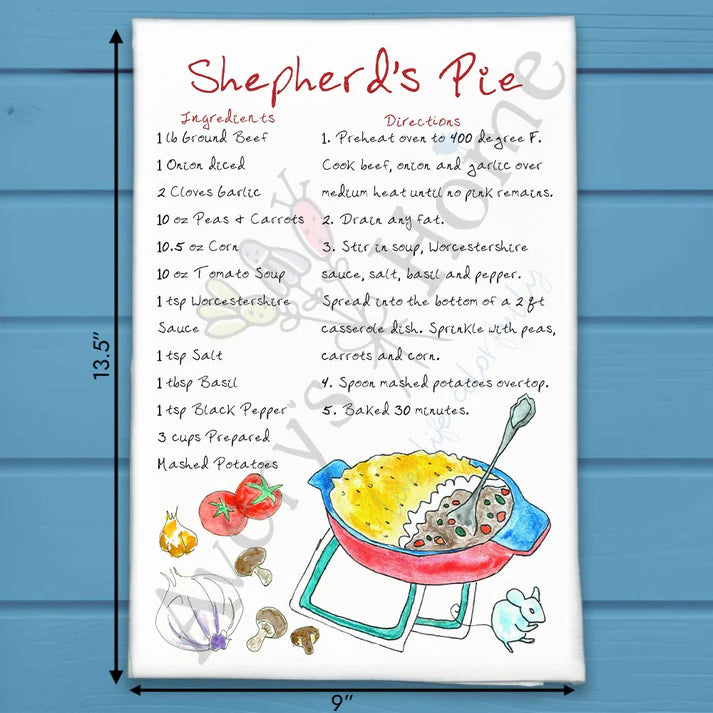 Shepherd's Pie
Ingredients
1 lb Ground Beef
1 Onion diced
2 Cloves Garlic
10 oz Peas & Carrots
10.5 oz Corn
10 oz Tomato Soup
1 tsp Worcestershire
Sauce
1 tsp Salt
1 tbsp Basil
1 tsp Black Pepper
3 cups Prepared
Mashed Potatoes
Directions
1. Preheat oven to 400 degree F.
Cook beef, onion and garlic over
medium heat until no pink remains.
2. Drain any fat.
3. Stir in soup, Worcestershire
sauce, salt, basil and pepper.
Spread into the bottom of a 2 qt
casserole dish. Sprinkle with peas,
carrots and corn.
4. Spoon mashed potatoes overtop.
5. Baked 30 minutes.
13.5"
9"
Avery's Home
life colorfully